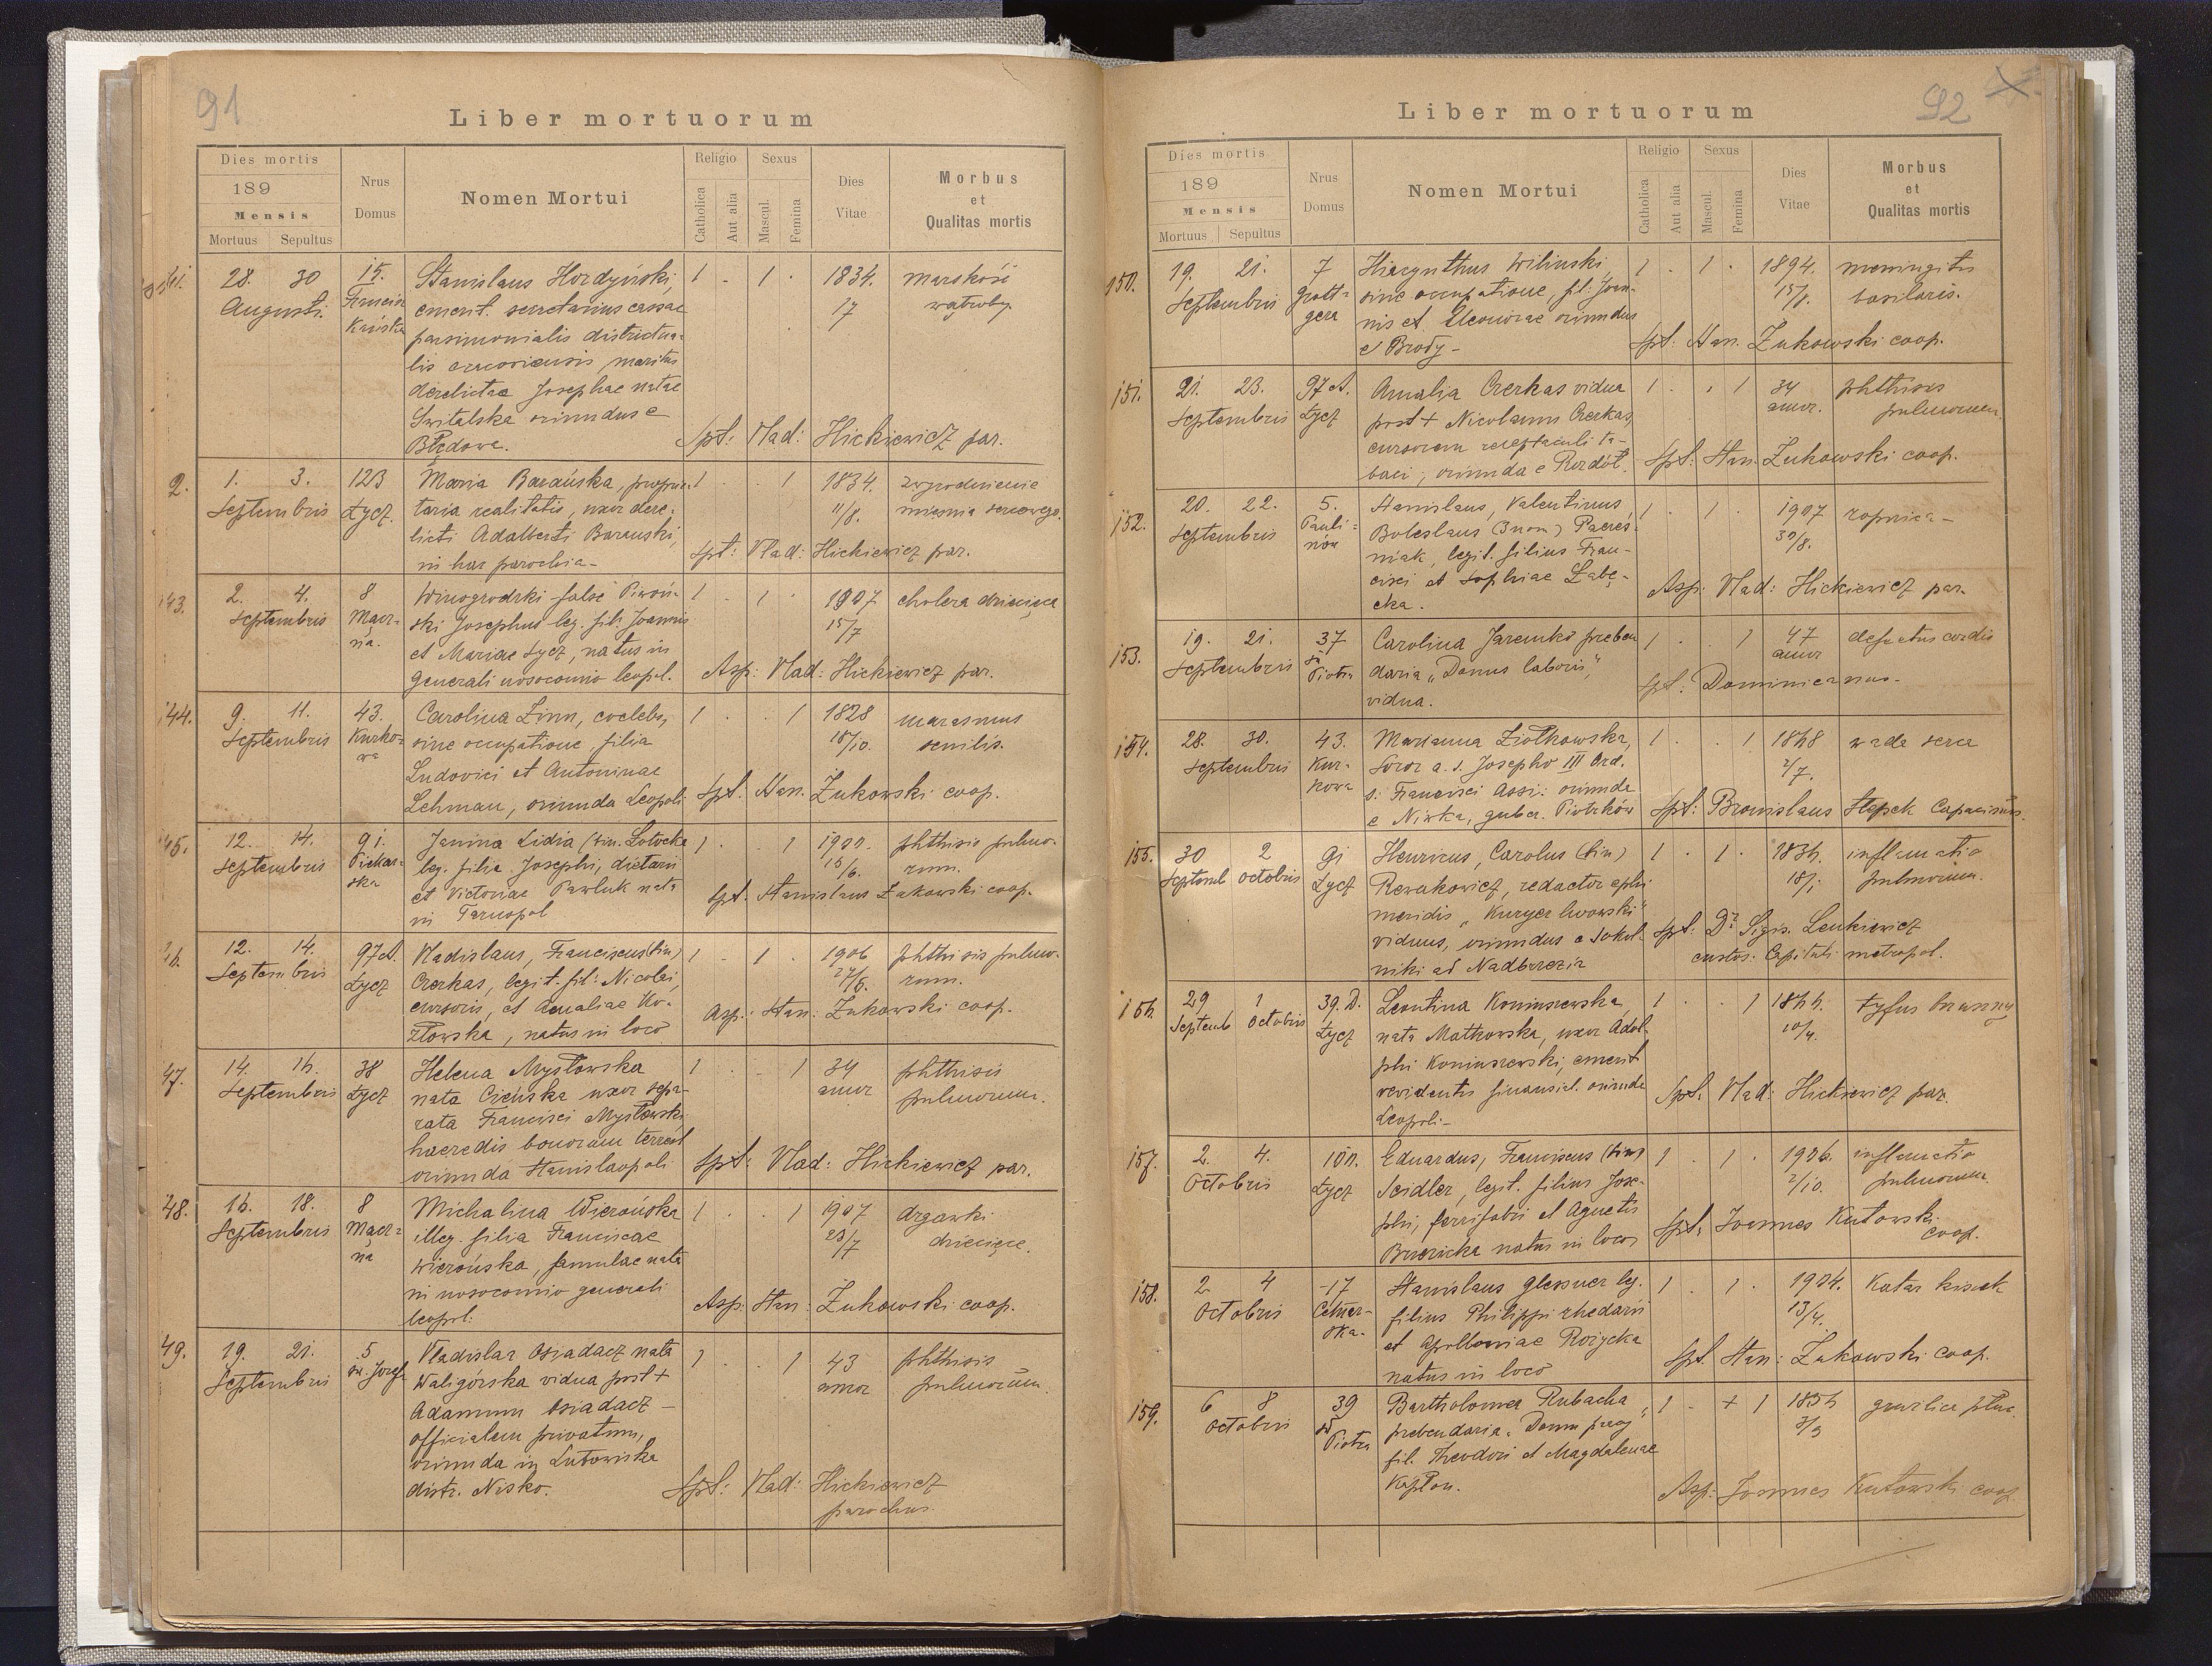 91
Liber mortuorum
Dies mortis
189
Mensis
Mortuus Sepultus
Nrus Domus
Nomen Mortui
Religio
Catholica
Aut alia
Sexus
Mascul.
Femina
Dies Vitae
Morbus et Qualitas mortis
28. 30 Augusti.
15. Francisz
Stanislaus Hordyński,
emerit. secretarius cassae
parsimonialis districtua-
lis cracoviensis, maritus
derelictae Josephae natae
Świtalska oriundus e
Błędowa.
1 . 1 .
1834.
17
marskość
wątroby
Spt: Vlad: Hickiewicz par.
2. 1. 3. Septembris
123 Łycz.
Maria Barańska, proprie-
taria realitatis, uxor dere-
licti Adalberti Barański,
in hac parochia-
1 . . 1
1834.
11/8.
zwyrodnienie
mięśnia sercowego.
Spt: Vlad: Hickiewicz par.
143. 2. 4. Septembris
8 Mącz-
na.
Winogrodzki false Piwoń-
ski Josephus leg. fil. Joannis
et Mariae Łycz, natus in
generali nosocomio leopol.
1 . 1 .
1907
15/7
cholera dziecięca
Asp: Vlad: Hickiewicz par.
144. 9. 11. Septembris
43. Kurko-
wa
Carolina Linn, coelebs,
sine occupatione, filia
Ludovici et Antoninae
Lehman, oriunda Leopoli
1 . . 1
1828
18/10.
marasmus
senilis.
Spt. Stan. Żukowski coop.
145. 12. 14. Septembris
91. Piekar-
ska
Janina Lidia (bin. Łotocka
leg. filia Josephi, dietarii
et Victoriae Pawluk nata
in Tarnopol
1 . . 1
1900.
15/6.
phthisis pulmo-
num.
Spt. Stanislaus Żukowski coop.
12. 14. Septembris
97A. Łycz
Vladislaus, Franciscus (bin)
Czerkas, legit. fil: Nicolai,
cursoris, et Amaliae Ko-
złowska, natus in loco
1 . 1 .
1906
27/6.
phthisis pulmo-
num.
Asp: Stan: Żukowski coop.
47. 14. 16. Septembris
38 Łycz
Helena Mysłowska
nata Cieńska uxor sepa-
rata Francisci Mysłowski,
haeredis bonorum terrest
oriunda Stanislaopoli
1 . . 1
34
annor
phthisis
pulmonum.
Spt: Vlad: Hickiewicz par.
48. 16. 18. Septembris
8 Mącz-
na
Michalina Wierońska
illeg. filia Franciscae
Wierońska, famulae nata
in nosocomio generali
leopol.
1 . . 1
1907
28/7
drgawki
dziecięce.
Asp: Stan: Żukowski coop.
49. 19. 21. Septembris
5 św. Józefa
Vladislaa Osiadacz nata
Waligórska vidua post +
Adamum Osiadacz -
officialem privatum,
oriunda in
distr. Nisko.
1 . . 1
43
annor
phthisis
pulmonum.
Spt: Vlad: Hickiewicz
parochus.
92
Liber mortuorum
Dies mortis
189
Mensis
Mortuus Sepultus
Nrus Domus
Nomen Mortui
Religio
Catholica
Aut alia
Sexus
Mascul.
Femina
Dies Vitae
Morbus et Qualitas mortis
150. 19. 21. Septembris
7 Grott-
gera
Hiacynthus Wilinski,
sine occupatione, fil: Joan-
nis et Eleonorae oriundus
e Brody -
1 . 1 .
1894.
15/8.
meningitis
basilaris.
Spt: Stan. Żukowski coop.
151. 21. 23. Septembris
97A. Łycz
Amalia Czerkas vidua
post + Nicolaum Czerkas,
cursorem receptaculi ta-
baci, oriunda e Rozdół.
1 . . 1
34
annor.
phthisis
pulmonum
Spt: Stan. Żukowski coop.
152. 20. 22. Septembris
5. Pauli-
nów
Stanislaus, Valentinus,
Boleslaus (3nom) Pacześ-
niak, legit. filius Fran-
cisci et Sophiae Łabę-
cka.
1 . 1 .
1907
30/8.
ropnica -
Asp: Vlad: Hickiewicz par.
153. 19. 21. Septembris
37 św Piotra
Carolina Jaremko preben
daria "Domus laboris",
vidua.
1 . 1
47
annor
defectus cordis
Spt: Dominicanus.
154. 28. 30. Septembris
43. Kur-
kowa
Marianna Ziółkowska,
Soror a. s. Josepho III Ord.
s: Francisci Assi: oriunda
e Niwka, guber. Piotrków
1 . . 1
1848
2/7.
wada serca
Spt: Bronislaus Stepek Capucinus.
155. 30 Septemb 2 Octobris
91 Łycz
Henricus, Carolus (bin)
Rewakowicz, redactor ephe
meridis "Kuryer lwowski"
viduus, oriundus e Sokol-
niki ad Nadbrzezia
1 . 1 .
1836.
18/1.
inflamatio
pulmonum.
Spt: Dr Sigis. Lenkiewicz
custos. Capituli metropol.
156. 29 Septemb 1 Octobris
39.D. Łycz
Leontina Koniuszewska
nata Matkowska, uxor Adol-
phi Koniuszewski, emerit
revidentis finansial. oriunda
Leopoli.-
1 . . 1
1846.
10/4.
tyfus brzuszny
Spt. Vlad: Hickiewicz par.
157. 2. 4. Octobris
100. Łycz
Eduardus, Franciscus (bin)
Seidler, legit. filius Jose-
phi, ferrifabri et Agnetis
Brzezicka natus in loco
1 . 1 .
1906.
2/10.
inflamatio
pulmonum.
Spt. Joannes Kutowski
coop.
158. 2 4 Octobris
17 Cetnar-
ska.
Stanislaus Glessner leg.
filius Philippi rhedarii
et Apolloniae Rożycka
natus in loco
1 . 1 .
1904.
13/4.
Katar kiszek
Spt. Stan: Żukowski coop.
159. 6 8 Octobris
39 św Piotra
Bartholomea Rubacha,
prebendaria "Domu pracy"
fil. Theodori et Magdalenae
Kapłon.
1 . + 1
1856
3/9
gruźlica płuc.
Asp: Joannes Kutowski coop.